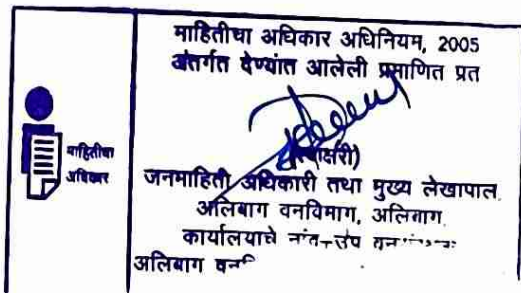 माहितीचा अधिकार अधिनियम, 2005
अंतर्गत देण्यांत आलेली प्रमाणित प्रत
माहितीचा
अधिकार
जनमाहिती अधिकारी तथा मुख्य लेखापाल
अलिबाग वनविभाग, अलिबाग
कार्यालयाचे
अलिबाग